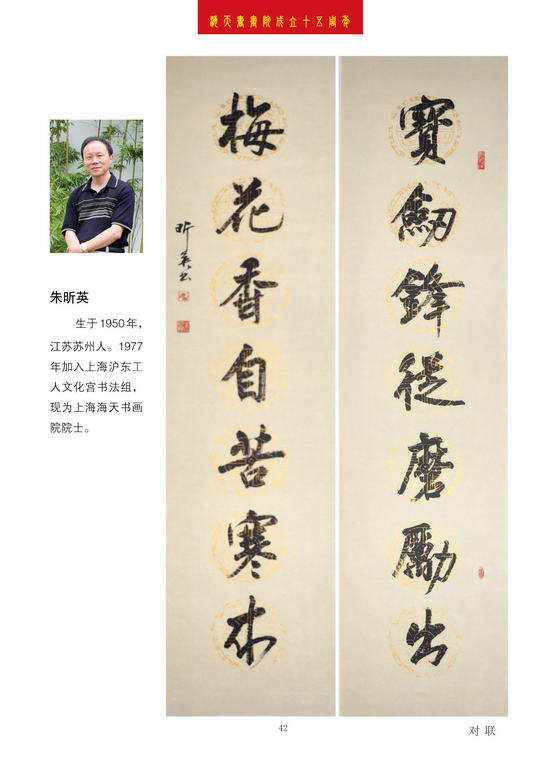 海天书画院成立十五周年
寶劒鋒從磨勵出
梅花香自苦寒來
昕英书
朱昕英
生于1950年，
江苏苏州人。1977
年加入上海沪东工
人文化宫书法组，
现为上海海天书画
院院士。
42
对联